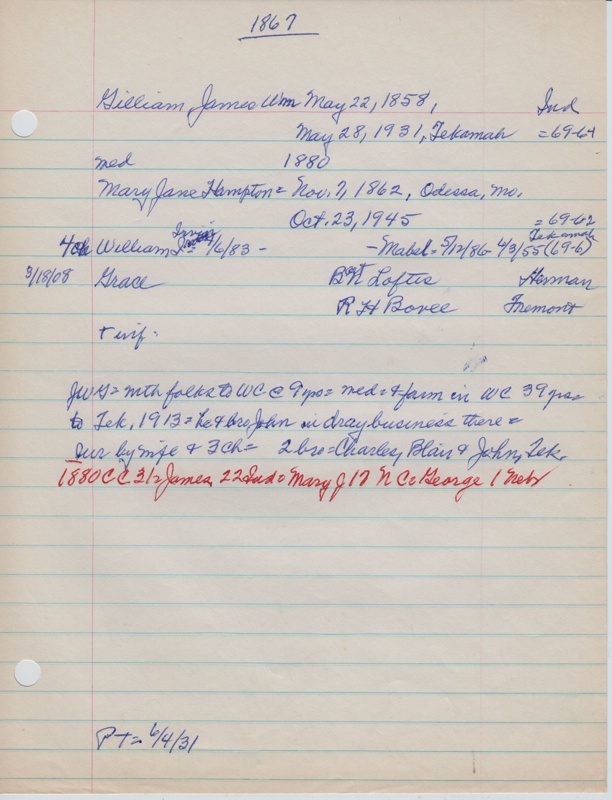 1867
Gilliam, James Wm May 22, 1858, Ind
May 28, 1931, Tekamah = 69-64
med 1880
Mary Jane Hampton = Nov. 7, 1862, Odessa, Mo.
Oct. 23, 1945 = 69-62
Tekamah
4 ch William Irwin = 1/6/83 - - Mabel = 5/12/86 4/3/55 (69-6)
3/18/08 Grace Bert N Loftis Herman
R H Bovee Fremont
+ inf:
JWG = with folks to WC @ 9 yrs = med = + farm in WC 39 yrs =
to Tek, 1913 = he + bro John in dray business there =
sur by wife + 3 ch = 2 bro = Charles, Blair + John, Tek.
1880 CC 31 = James, 22 Ind = Mary J 17 N C = George 1 Nebr
PT = 6/4/31